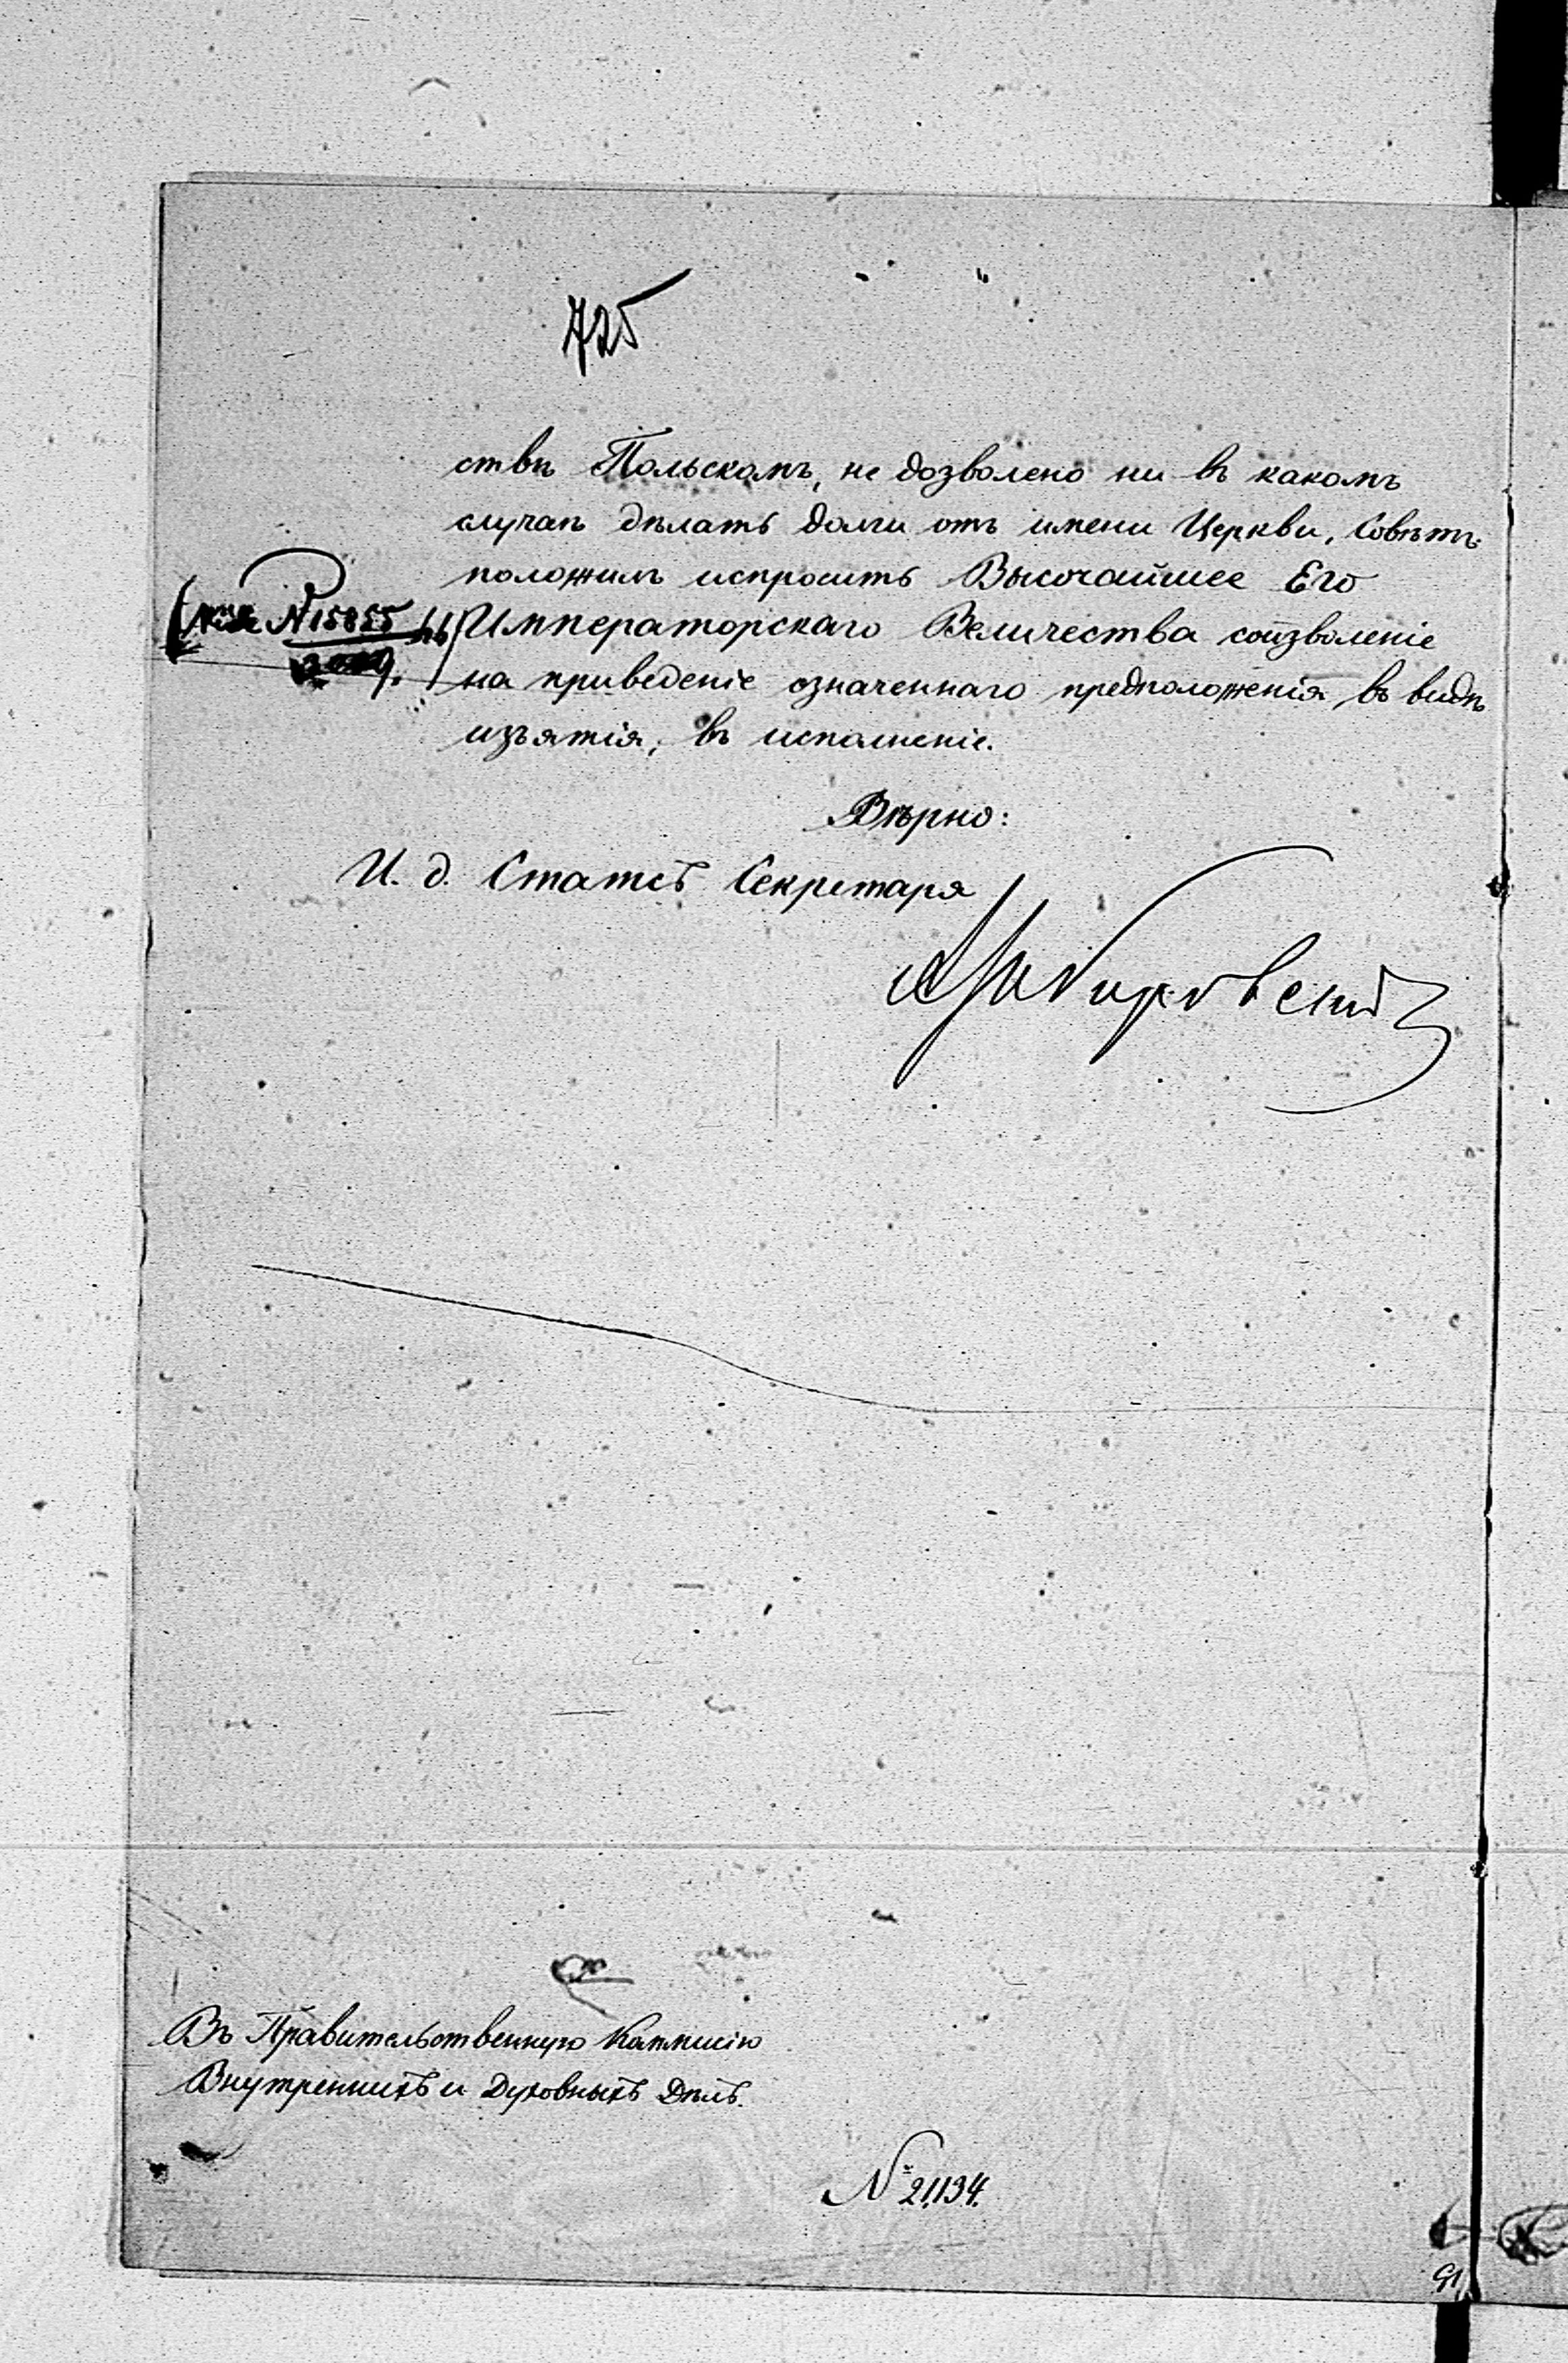 725
ствѣ Польскомъ, не дозволено ни въ какомъ
случаѣ дѣлать долги отъ имени Церкви, Совѣтъ
положилъ испросить Высочайшее Его
Императорскаго Величества соизволеніе
на приведеніе означеннаго предположенія, въ видѣ
изъятія, въ исполненіе.
№ 15855
Вѣрно:
И. д. Статсъ Секретаря
Въ Правительственную Коммисію
Внутреннихъ и Духовныхъ Дѣлъ.
№ 21,134.